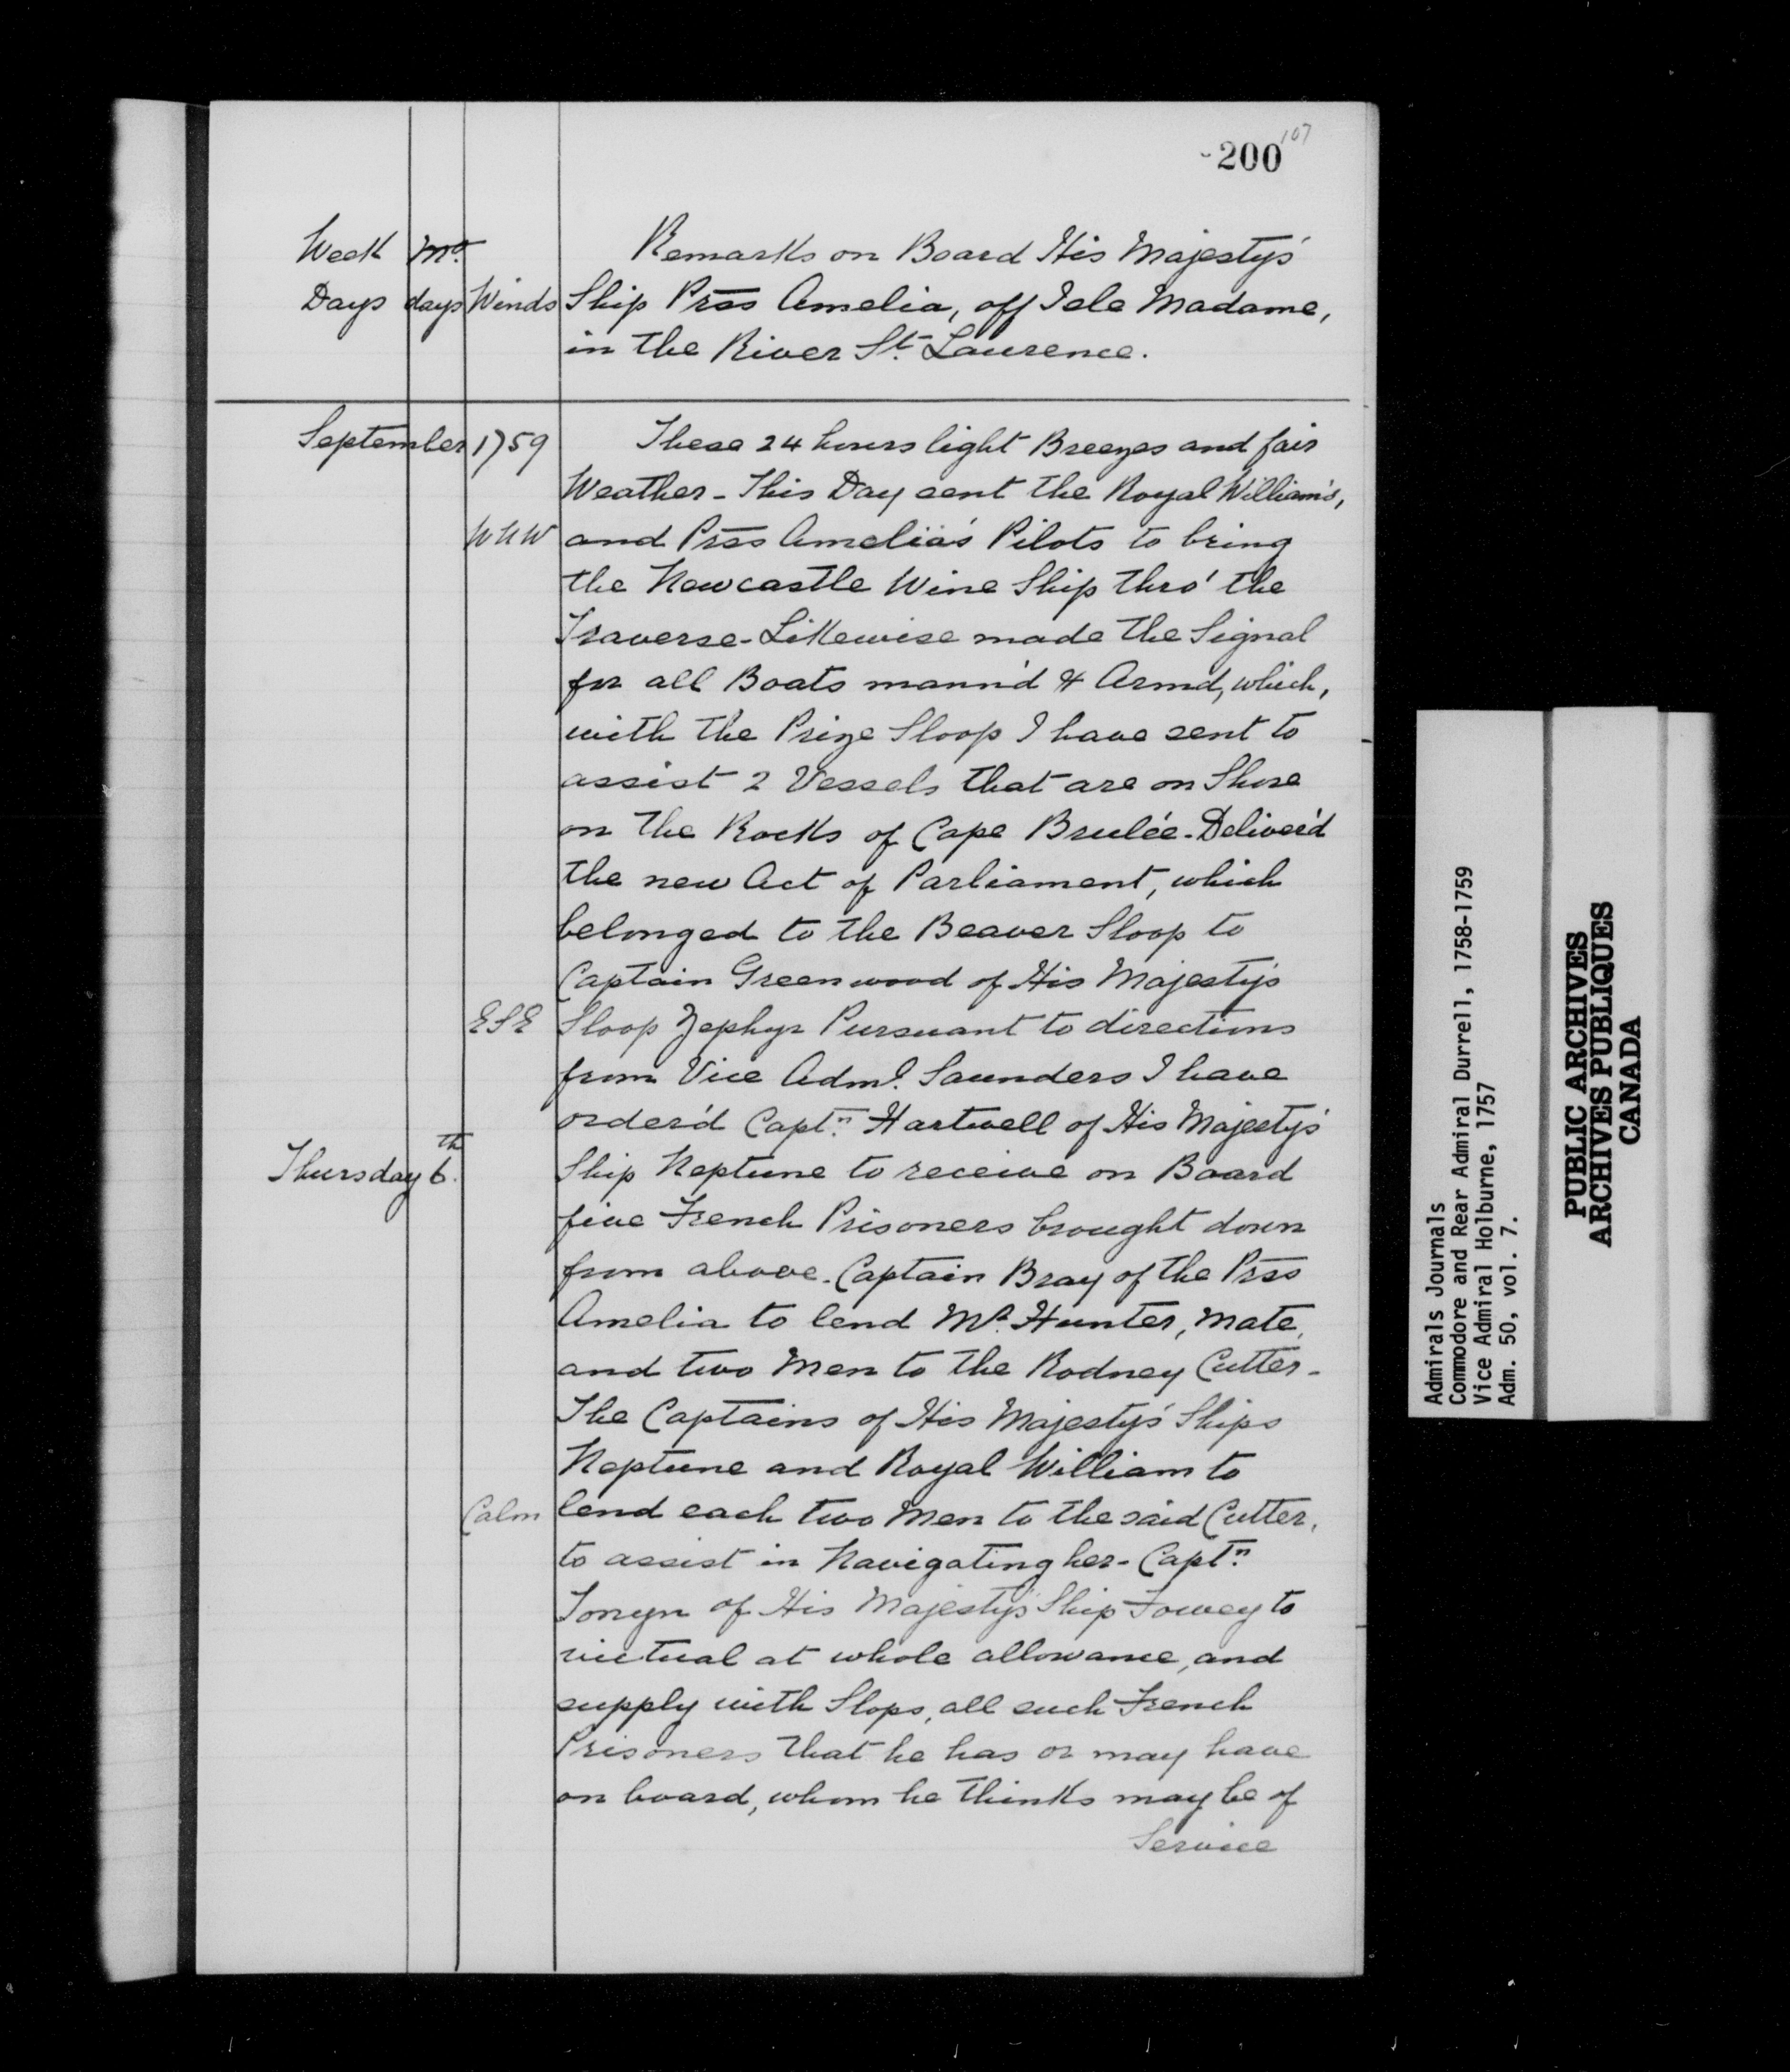 -200
107
Week Mo.
Days days Winds
Remarks on Board His Majesty's
Ship Prss Amelia, off Isle Madame,
in the River St. Laurence.
September 1759
These 24 hours light Breezes and fair
Weather - This Day sent the Royal William's,
WNW and Prss Amelia's Pilots to bring
the Newcastle Wine Ship thro' the
Traverse - Likewise made the Signal
for all Boats mann'd & Arm'd, which,
with the Prize Sloop I have sent to
assist 2 Vessels that are on Shore
on the Rocks of Cape Brulée - Deliver'd
the new Act of Parliament, which
belonged to the Beaver Sloop to
Captain Greenwood of His Majesty's
ESE Sloop Zephyr Pursuant to directions
from Vice Adml. Saunders I have
order'd Captn. Hartwell of His Majesty's
Thursday 6th. Ship Neptune to receive on Board
five French Prisoners brought down
from above - Captain Bray of the Prss
Amelia to lend Mr. Hunter, Mate,
and two Men to the Rodney Cutter -
The Captains of His Majesty's Ships
Neptune and Royal William to
Calm lend each two Men to the said Cutter,
to assist in Navigating her - Captn.
Tonyn of His Majesty's Ship Fowey to
victual at whole allowance, and
supply with Slops, all such French
Prisoners that he has or may have
on board, whom he thinks may be of
Service
Admirals Journals
Commodore and Rear Admiral Durrell, 1758-1759
Vice Admiral Holburne, 1757
Adm. 50, vol. 7.
PUBLIC ARCHIVES
ARCHIVES PUBLIQUES
CANADA